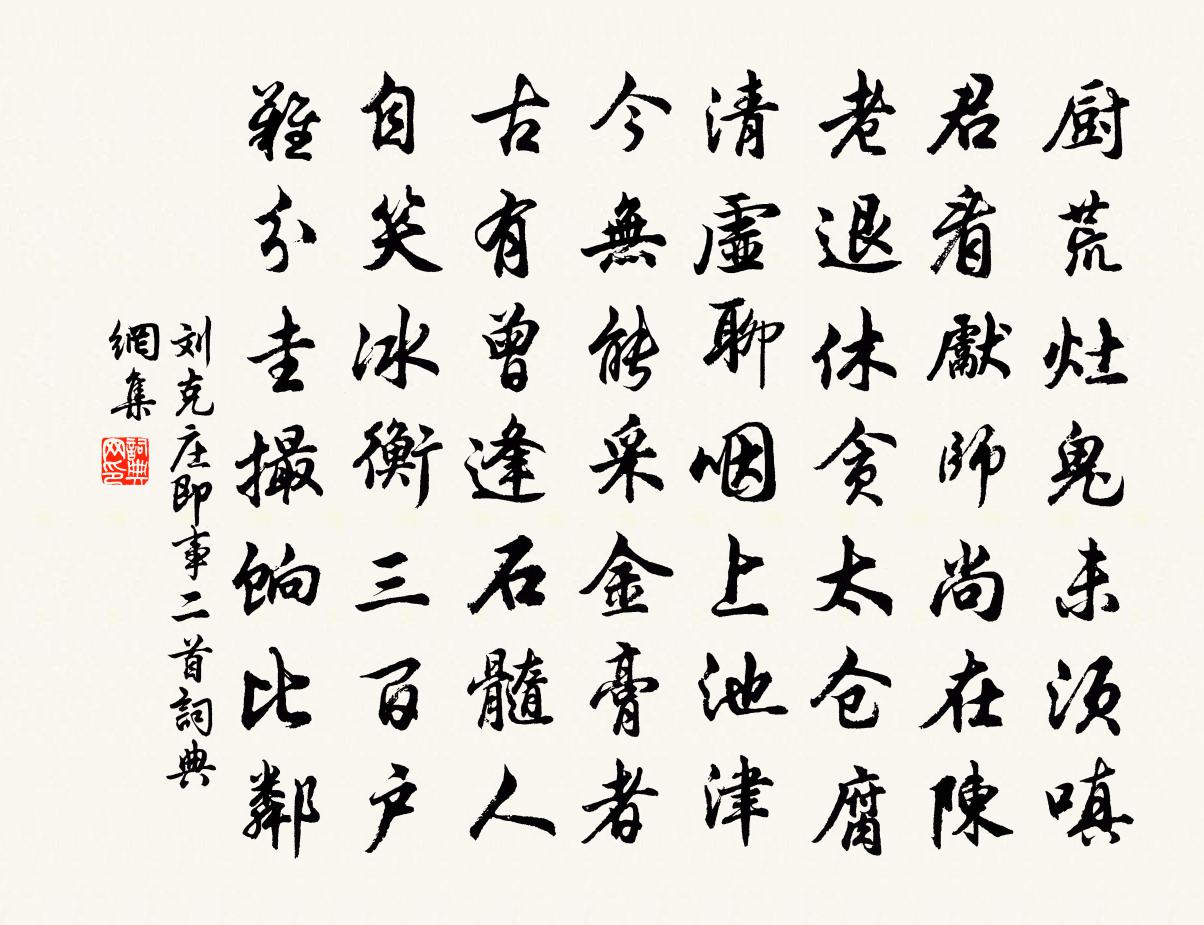 厨荒灶鬼未须嗔
君看獻師尚在陳
老退休贪太仓腐
清虛聊咽上池津
今無能采金膏者
古有曾逢石髓人
自笑冰衡三百户
難分圭撮餉比鄰
刘克庄即事二首詞典
網集
詞典網印